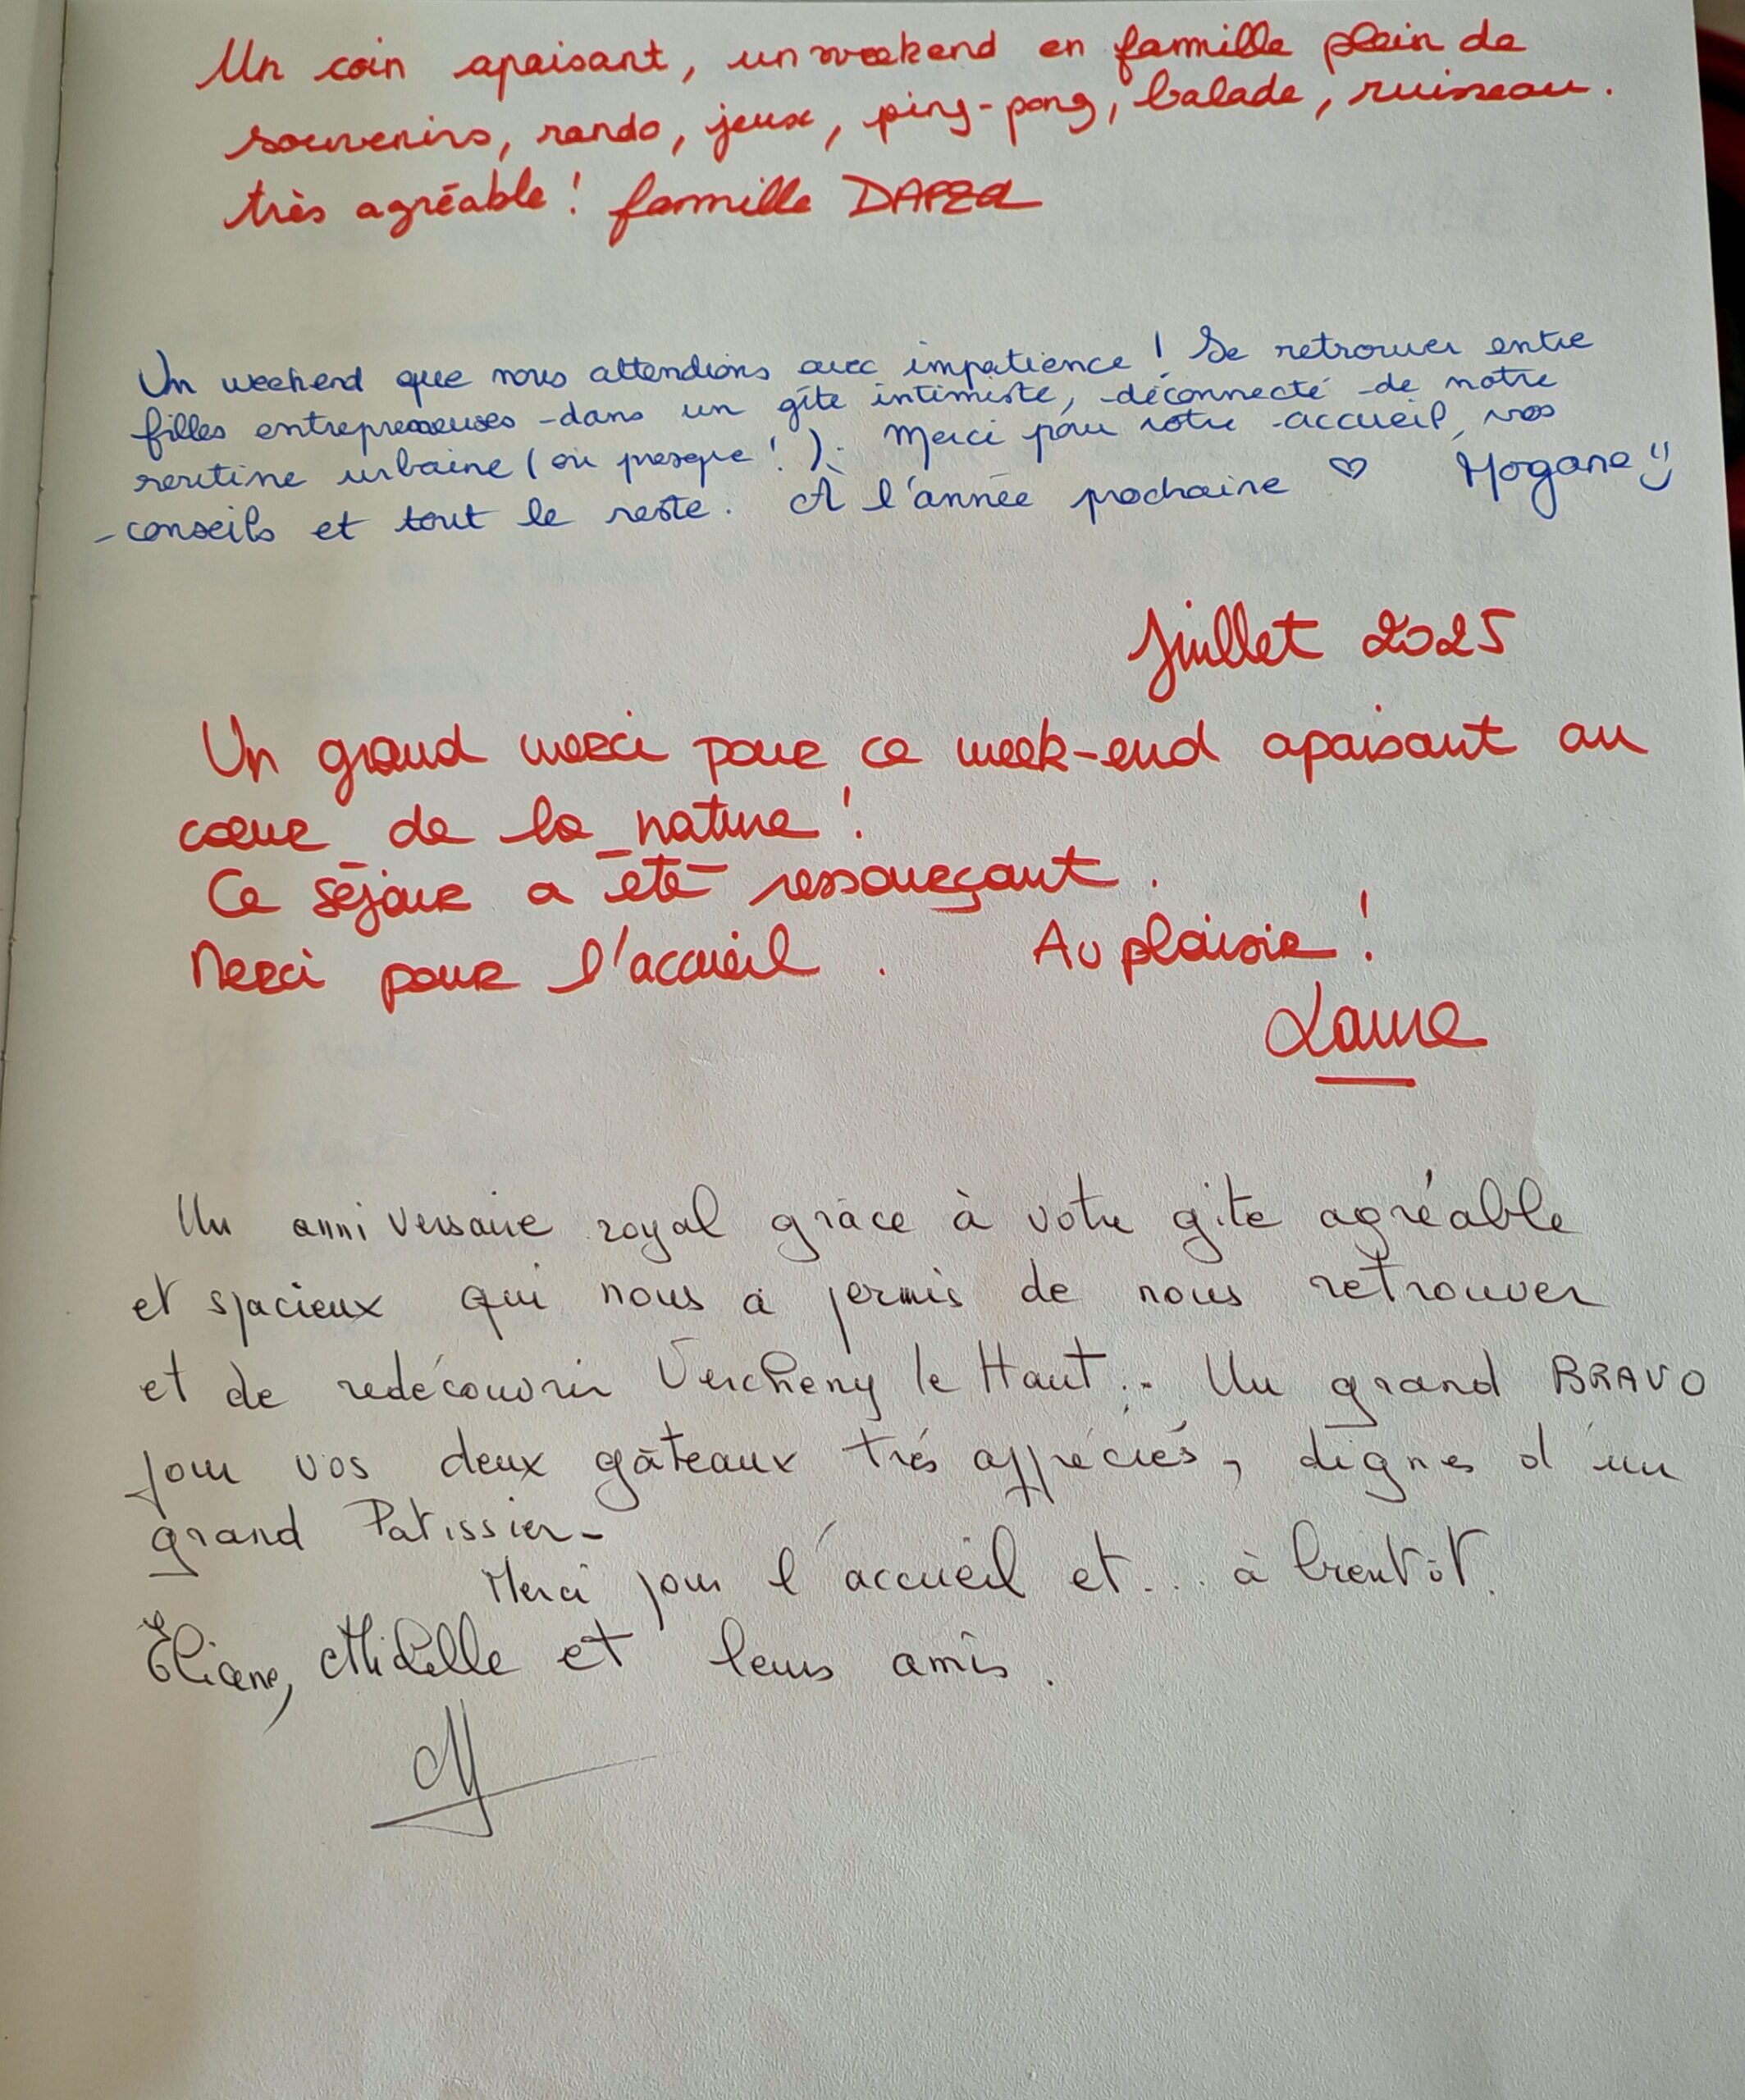 Un coin apaisant, un weekend en famille plein de
souvenirs, rando, jeux, ping-pong, balade, ruisseau.
très agréable! famille
Un weekend que nous attendions avec impatience! Se retrouver entre
filles entrepreneuses dans un gîte intimiste, déconnecté de notre
routine urbaine (ou presque!). Merci pour votre accueil, vos
conseils et tout le reste. À l'année prochaine ♡ Mogane
Juillet 2025
Un grand merci pour ce week-end apaisant au
cœur de la nature!
Ce séjour a été ressourçant.
Merci pour l'accueil. Au plaisir!
Laure
Un anniversaire royal grâce à votre gîte agréable
et spacieux qui nous a permis de nous retrouver
et de redécouvrir Vercheny le Haut.. Un grand BRAVO
pour vos deux gâteaux très appréciés, dignes d'un
grand Patissier-
Merci pour l'accueil et... à bientôt.
Eliane, Michelle et leurs amis.